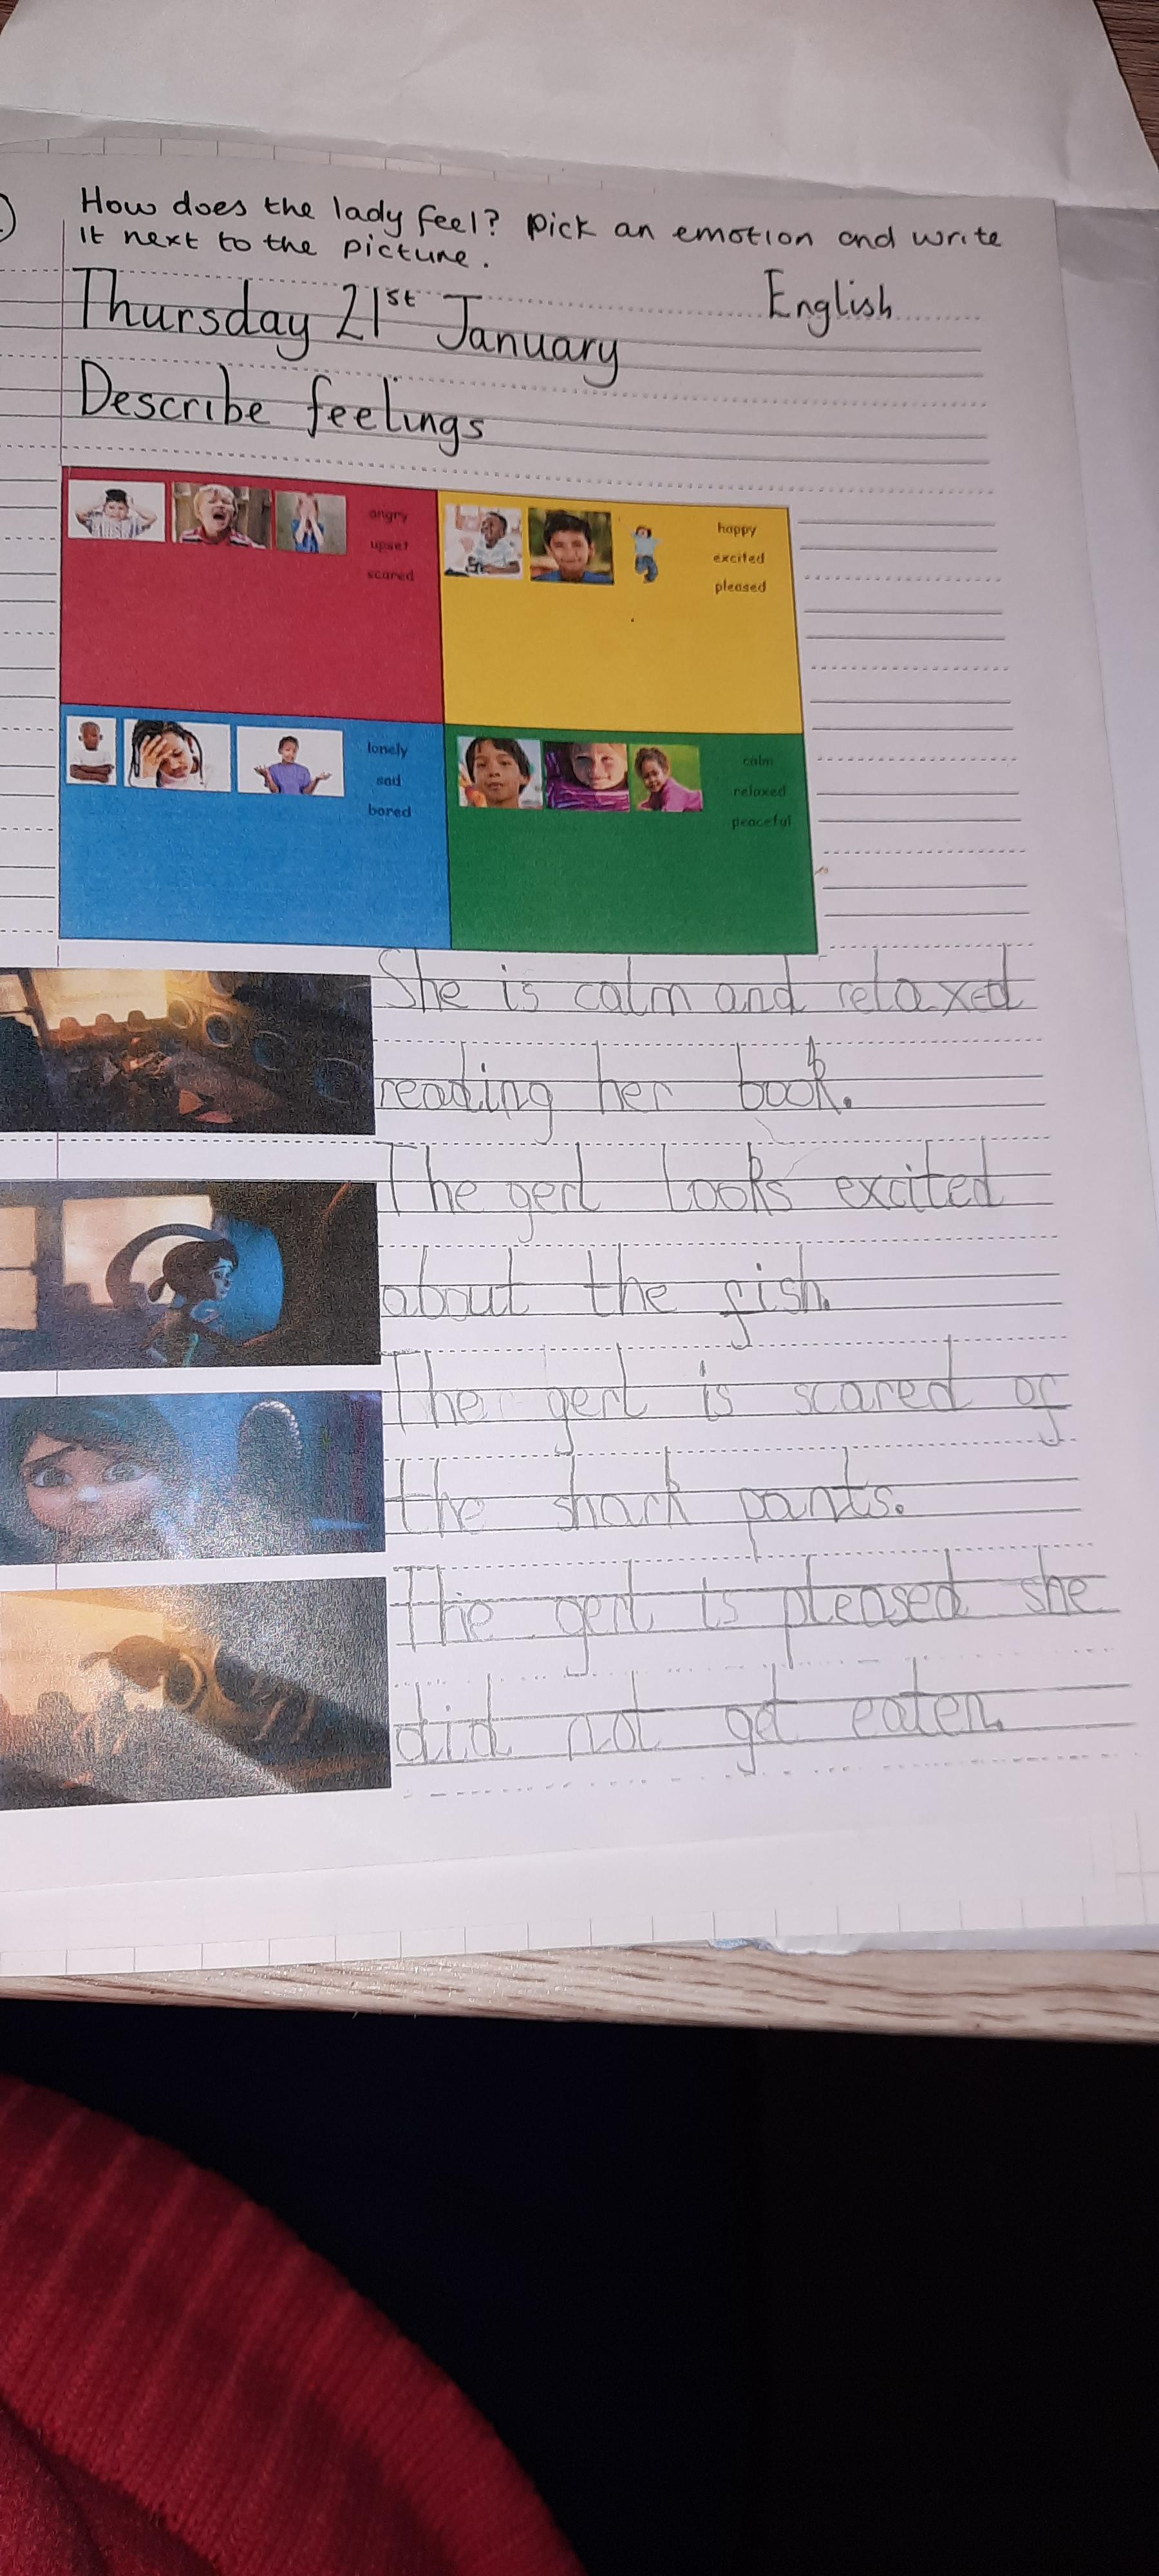 How does the lady feel? Pick an emotion and write
it next to the picture.
English
Thursday 21st January
Describe feelings
angry
upset
scared
happy
excited
pleased
lonely
sad
bored
calm
relaxed
peaceful
She is calm and relaxed
reading her book.
The gerl looks excited
about the fish.
The gerl is scared of
the shark pants.
The gerl is pleased she
did not get eaten.